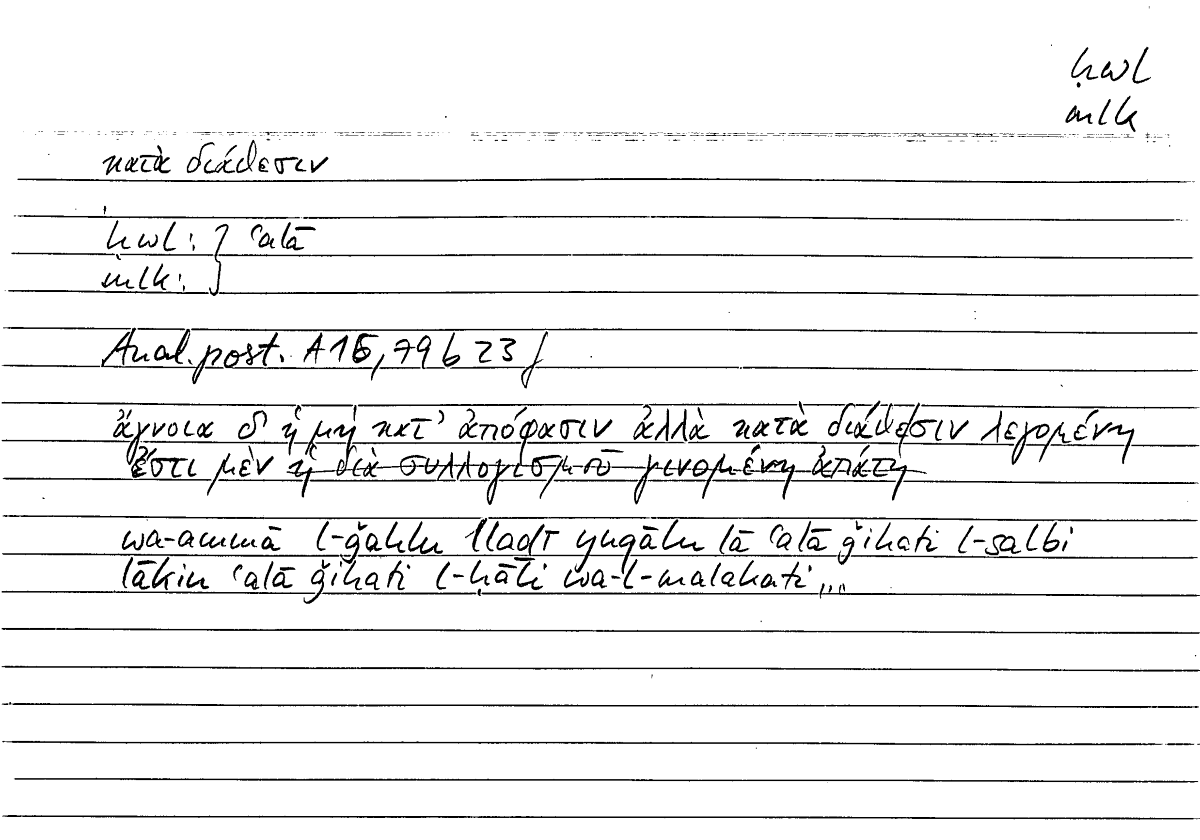 ḥwl
mlk
κατὰ διάθεσιν
ḥwl: } ʿalā
mlk:
Anal. post. A 16, 79 b 23 f
ἄγνοια δ' ἡ μὴ κατ' ἀπόφασιν ἀλλὰ κατὰ διάθεσιν λεγομένη
ἔστι μὲν ἡ διὰ συλλογισμοῦ γινομένη ἀπάτη
wa-ammā l-ǧahlu lladī yuqālu lā ʿalā ǧihati l-salbi
lākin ʿalā ǧihati l-ḥāli wa-l-malakati...